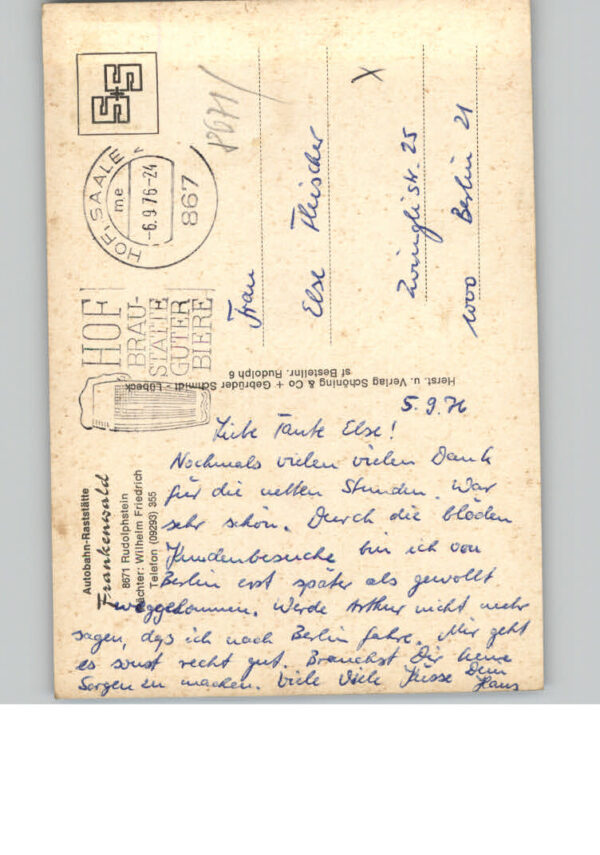 S+S
HOF, SAALE
me
-6.9.76-24
867
8671
HOF
BRAU-
STÄTTE
GUTER
BIERE
Frau
Else Fleischer
Zwinglistr. 25
1000 Berlin 21
Herst. u. Verlag Schöning & Co + Gebrüder Schmidt - Lübeck
sf Bestellnr. Rudolph 6
Autobahn-Raststätte
Frankenwald
8671 Rudolphstein
Pächter: Wilhelm Friedrich
Telefon (09293) 355
5.9.76
Liebe Tante Else!
Nochmals vielen vielen Dank
für die netten Stunden. War
sehr schön. Durch die blöden
Kundenbesuche bin ich von
Berlin erst später als gewollt
weggekommen. Werde Arthur nicht mehr
sagen, daß ich nach Berlin fahre. Mir geht
es sonst recht gut. Brauchst Dir keine
Sorgen zu machen. Viele Viele Küsse Dein
Hans